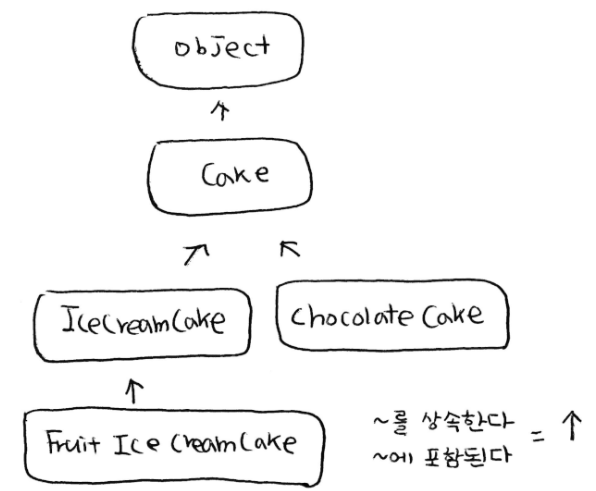 object
Cake
IceCreamCake
Chocolate Cake
Fruit Ice CreamCake
~를 상속한다
~에 포함된다 = ↑